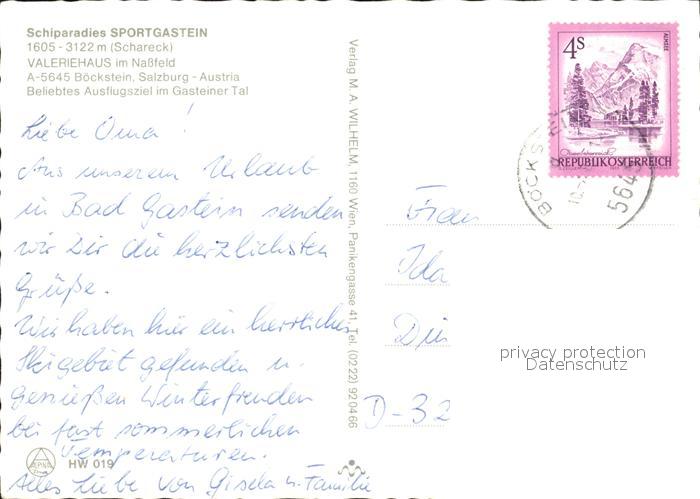 Schiparadies SPORTGASTEIN
1605 - 3122 m (Schareck)
VALERIEHAUS im Naßfeld
A-5645 Böckstein, Salzburg - Austria
Beliebtes Ausflugsziel im Gasteiner Tal
Liebe Oma!
Aus unserem Urlaub
in Bad Gastein senden
wir Dir die herzlichsten
Grüße.
Wir haben hier ein herrliches
Skigebiet gefunden u.
genießen Winterfreuden
bei fast sommerlichen
Temperaturen.
Alles Liebe von Gisela u. Familie
HW 019
Verlag M. A. WILHELM, 1160 Wien, Panikengasse 41, Tel. (0222) 920466
4S
ALMSEE
Oberösterreich
REPUBLIK ÖSTERREICH
BÖCKS
564
Frau
Ida
D-32
privacy protection
Datenschutz